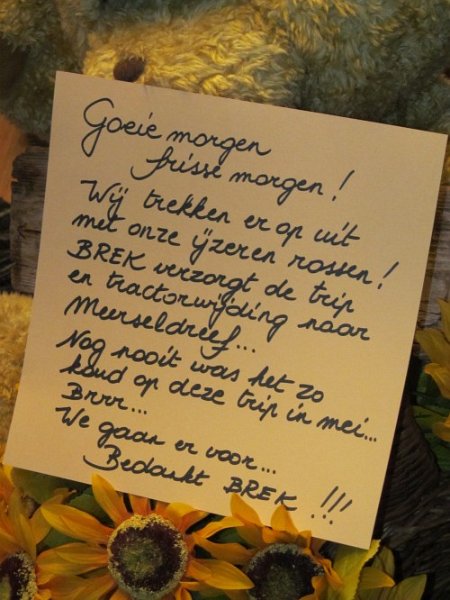 Goeie morgen
frisse morgen!
Wij trekken er op uit
met onze ijzeren rossen!
BREK verzorgt de trip
en tractorwijding naar
Meerseldreef...
Nog nooit was het zo
koud op deze trip in mei...
Brrr...
We gaan er voor...
Bedankt BREK !!!